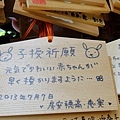 子授祈願
元気でかわいい赤ちゃんが
早く授かりますように…
2013年9月9日